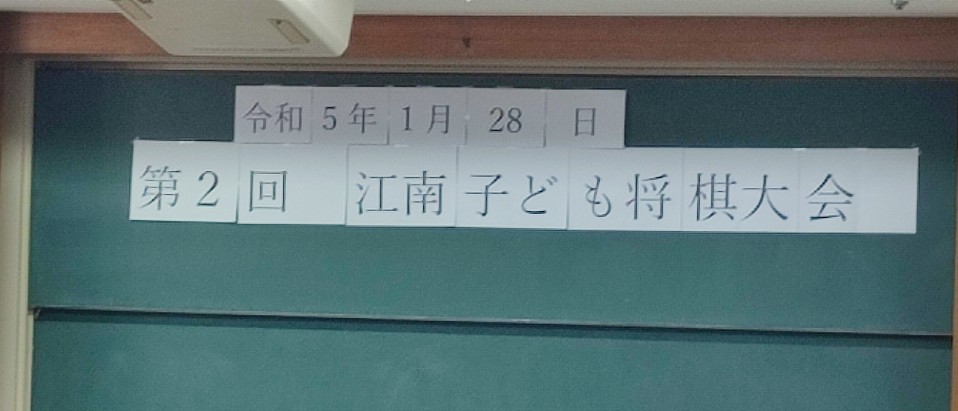 令和5年1月28日
第2回 江南子ども将棋大会